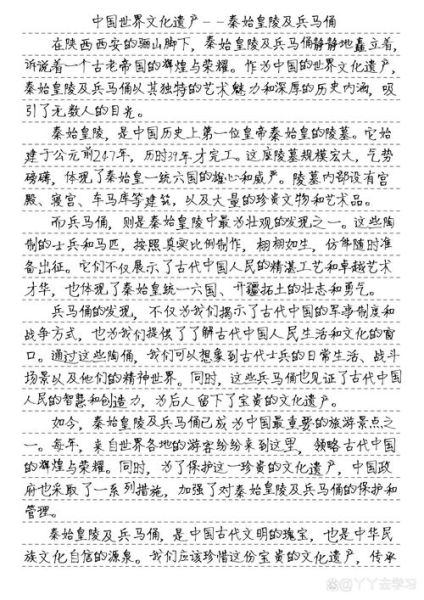 中国世界文化遗产--秦始皇陵及兵马俑
在陕西西安的骊山脚下，秦始皇陵及兵马俑静静地矗立着，
诉说着一个古老帝国的辉煌与荣耀。作为中国的世界文化遗产，
秦始皇陵及兵马俑以其独特的艺术魅力和深厚的历史内涵，吸
引了无数人的目光。
秦始皇陵，是中国历史上第一位皇帝秦始皇的陵墓。它始
建于公元前247年，历时39年才完工。这座陵墓规模宏大，气势
磅礴，体现了秦始皇一统六国的雄心和威严。陵墓内部设有宫
殿、寝宫、车马库等建筑，以及大量的珍贵文物和艺术品。
而兵马俑，则是秦始皇陵中最为壮观的发现之一。这些陶
制的士兵和马匹，按照真实比例制作，栩栩如生，仿佛随时准
备出征。它们不仅展示了古代中国人民的精湛工艺和卓越艺术
才华，也体现了秦始皇统一六国、开疆拓土的壮志和勇气。
兵马俑的发现，不仅为我们揭示了古代中国的军事制度和
战争方式，也为我们提供了了解古代中国人民生活和文化的窗
口。通过这些陶俑，我们可以想象到古代士兵的日常生活、战斗
场景以及他们的精神世界。同时，这些兵马俑也见证了古代中国
人民的智慧和创造力，为后人留下了宝贵的文化遗产。
如今，秦始皇陵及兵马俑已成为中国最重要的旅游景点之
一。每年，来自世界各地的游客纷纷来到这里，领略古代中国
的辉煌与荣耀。同时，为了保护这一珍贵的文化遗产，中国政
府也采取了一系列措施，加强了对秦始皇陵及兵马俑的保护和
管理。
秦始皇陵及兵马俑，是中国古代文明的瑰宝，也是中华民
族文化自信的源泉。我们应该珍惜这份宝贵的文化遗产，传承
@丫丫去学习